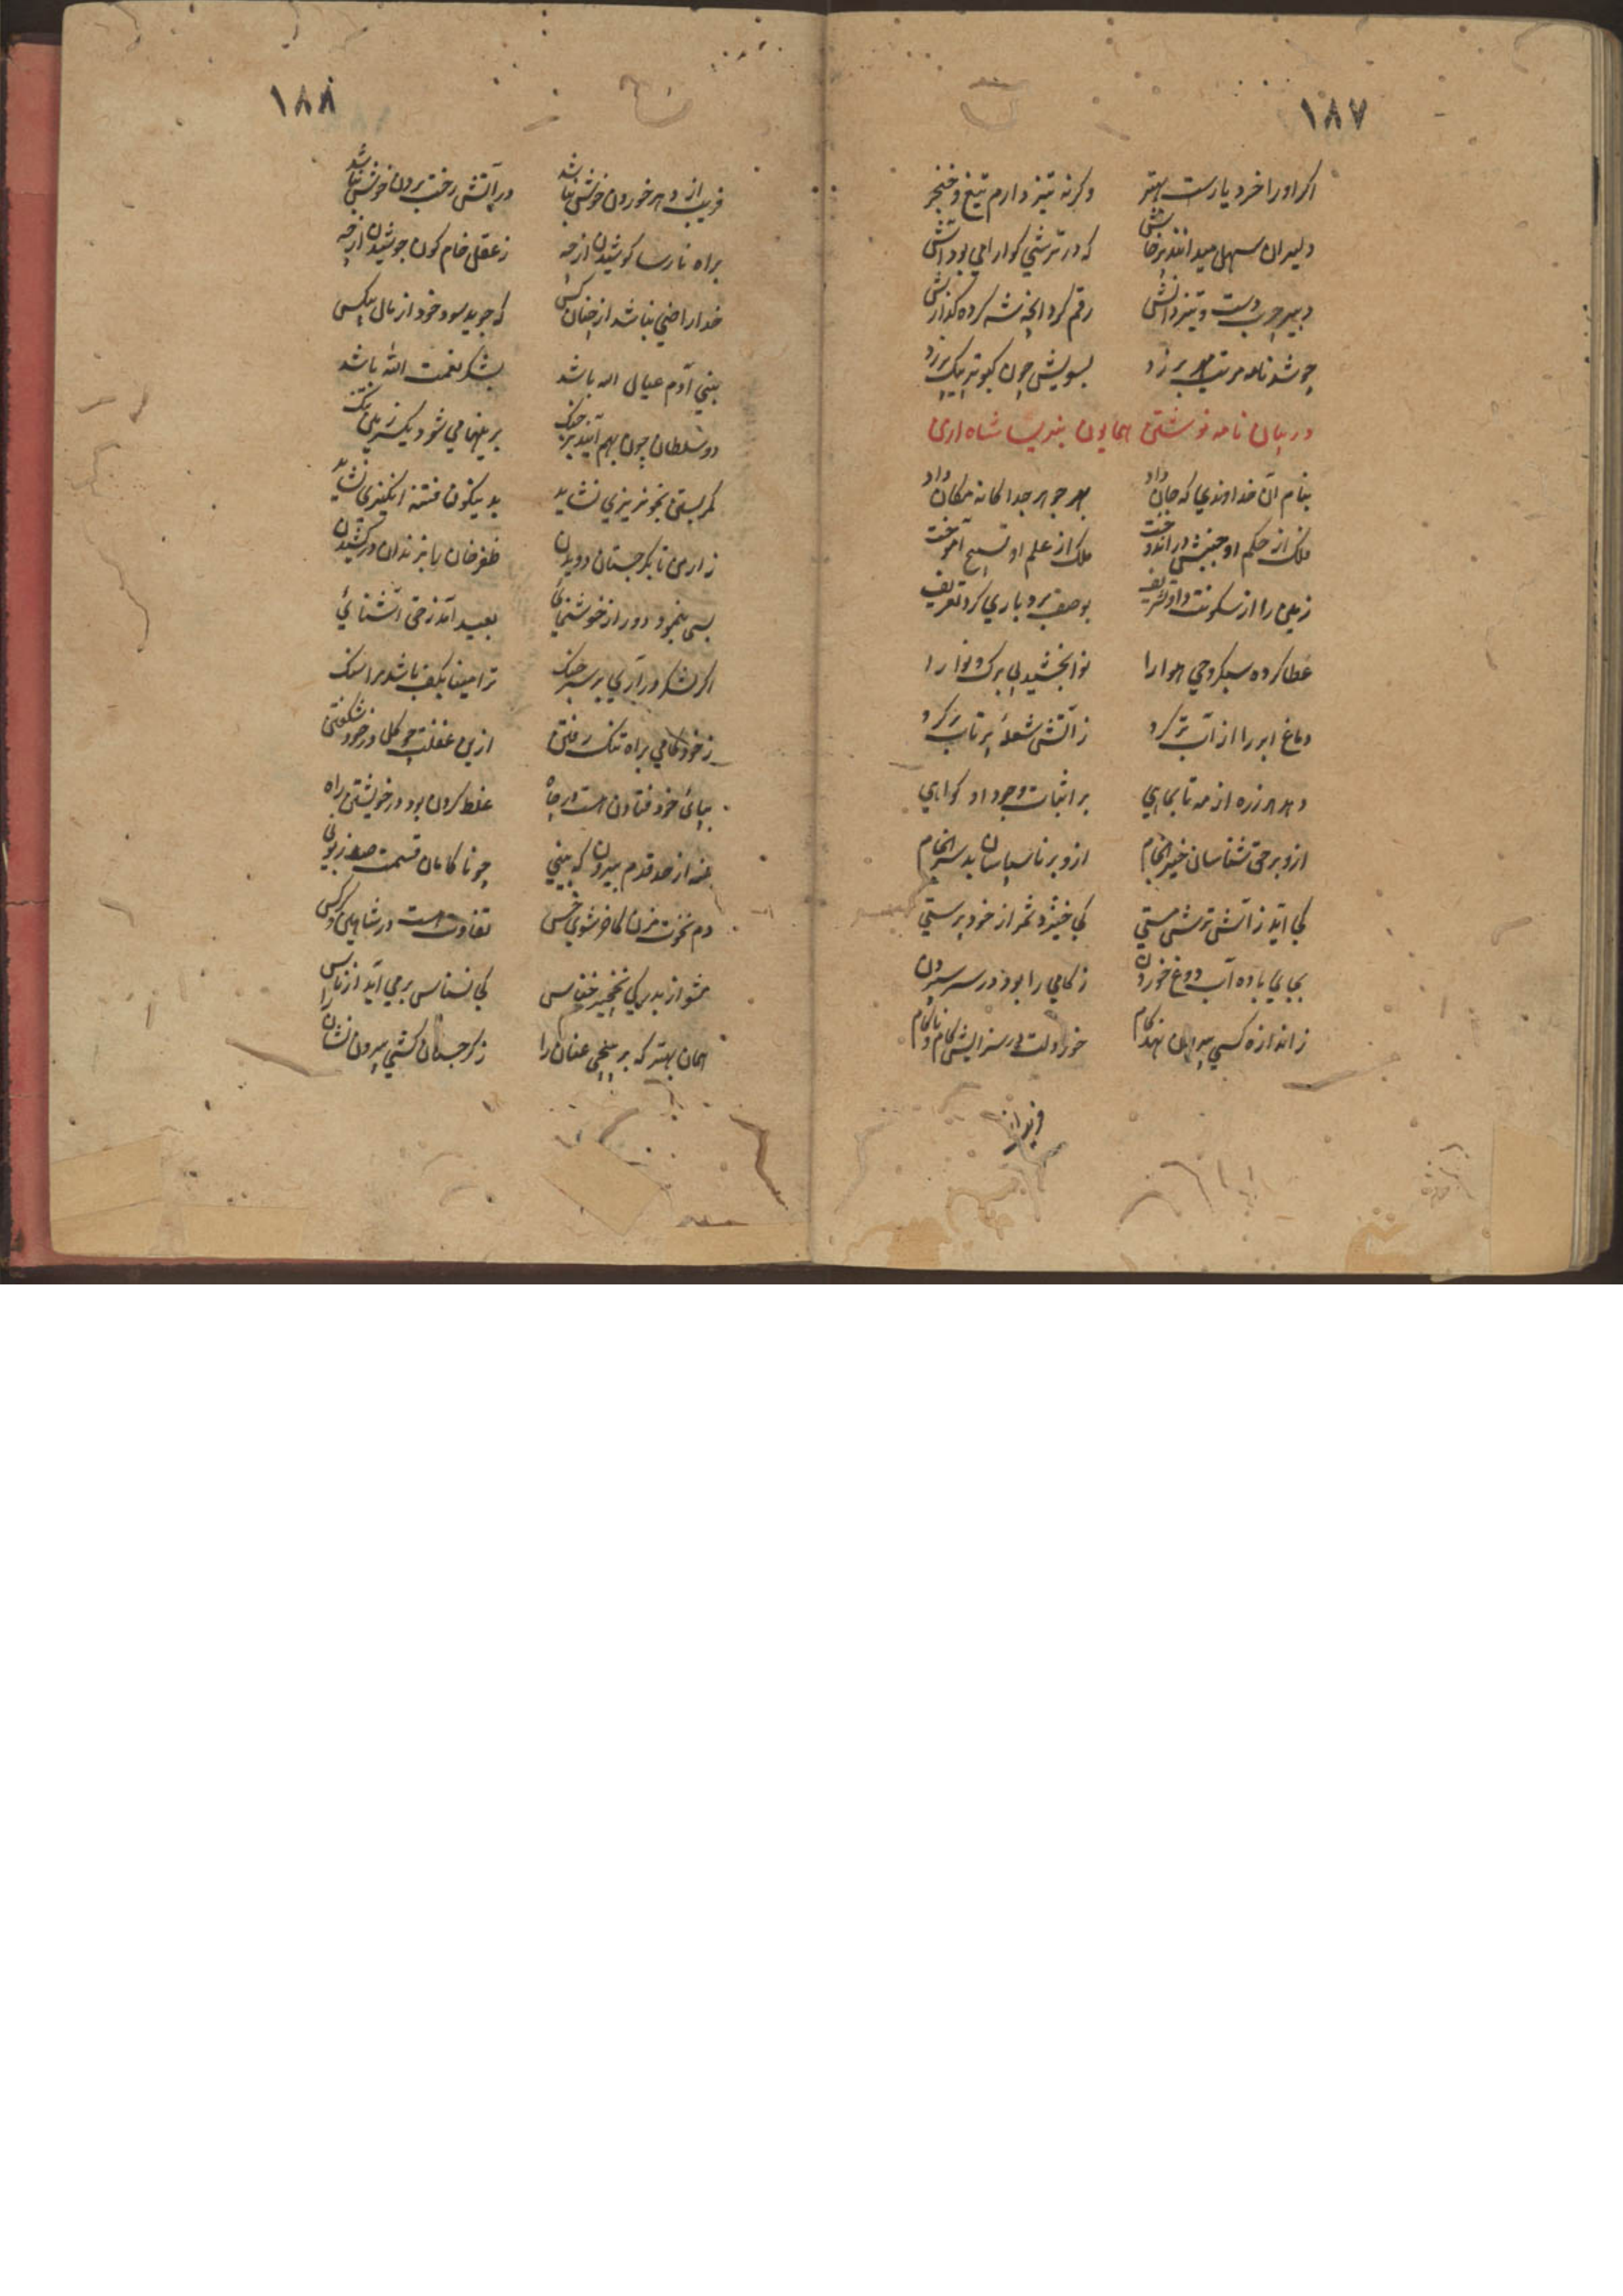 ۱۸۷
اگر او را خرد یارست بهتر وگرنه تیز دارم تیغ و خنجر
دلیران سهل میدانند پرخاش که در ترشی گوارا می بود آش
دبیر چرب دست و تیز دانش رقم کرد آنچه شه کرده گذارش
چو شد نامه مرتب مهر برزد بسویش چون کبوتر پیک پرزد
در بیان نامه نوشتن همایون بندیسا شاه ارمن
بنام آن خداوندی که جان داد بهر جوهر جداگانه مکان داد
فلک از حکم او جنبش در اندوخت ملک از علم او تسبیح آموخت
زمین را از سکونت داد تشریف بوصف بردباری کرد تعریف
عطا کرده سبکروحی هوا را نوا بخشید بی برگ و نوا را
دماغ ابر را از آب تر کرد ز آتش شعله پرتاب تر کرد
دهد هر ذره از مه تا بماهی بر اثبات وجود او گواهی
ازو بر حق شناسان خیر انجام ازو بر ناسپاسان بد سرانجام
کی آید ز آتش ترشی مستی کی خیزد ثمر از خودپرستی
بجای باده آب دوغ خوردن زکامی را بود در سر سپردن
ز اندازه کسی بیرون نهد گام خورد لت در سزایش کام و ناکام
۱۸۸
فریب از دهر خوردن خوش نباشد در آتش رخت بردن خوش نباشد
براه نارسا کوشیدن از چه ز عقل خام کون جوشیدن از چه
خدا راضی نباشد از چنان کس که جوید سود خود از مال بیکس
بنی آدم عیال الله باشد بشکر نعمت الله باشد
دو سلطان چون بهم آیند بر جنگ بریشها می شود یکسر زمین تنگ
کمر بستن بخونریزی نشاید بدینگون فتنه انگیزی نشاید
ز ارمن تا بگرجستان دویدن ظفرخان را بزندان در کشیدن
بسی بنمود دور از خوشنمائی بعید آمد ز حق آشنائی
اگر لشکر درآری بر سر جنگ ترا مینا بکف باشد مرا سنگ
ز خودکامی براه تنگ رفتن ازین غفلت چو گل در خود شکفتن
بپای خود فتادن هست در چاه غلط کردن بود در خویشتن راه
منه از حد قدم بیرون که بینی چو ناکامان قسمت صد زبونی
دم نخوت مزن کاخر شوی خس تفاوت هست در شاهین و کرکس
مشو از بدرگی نخچیر خناس کی نسناس برمی آید از ناس
همان بهتر که برپیچی عنان را ز گرجستان کشی بیرون نشان را